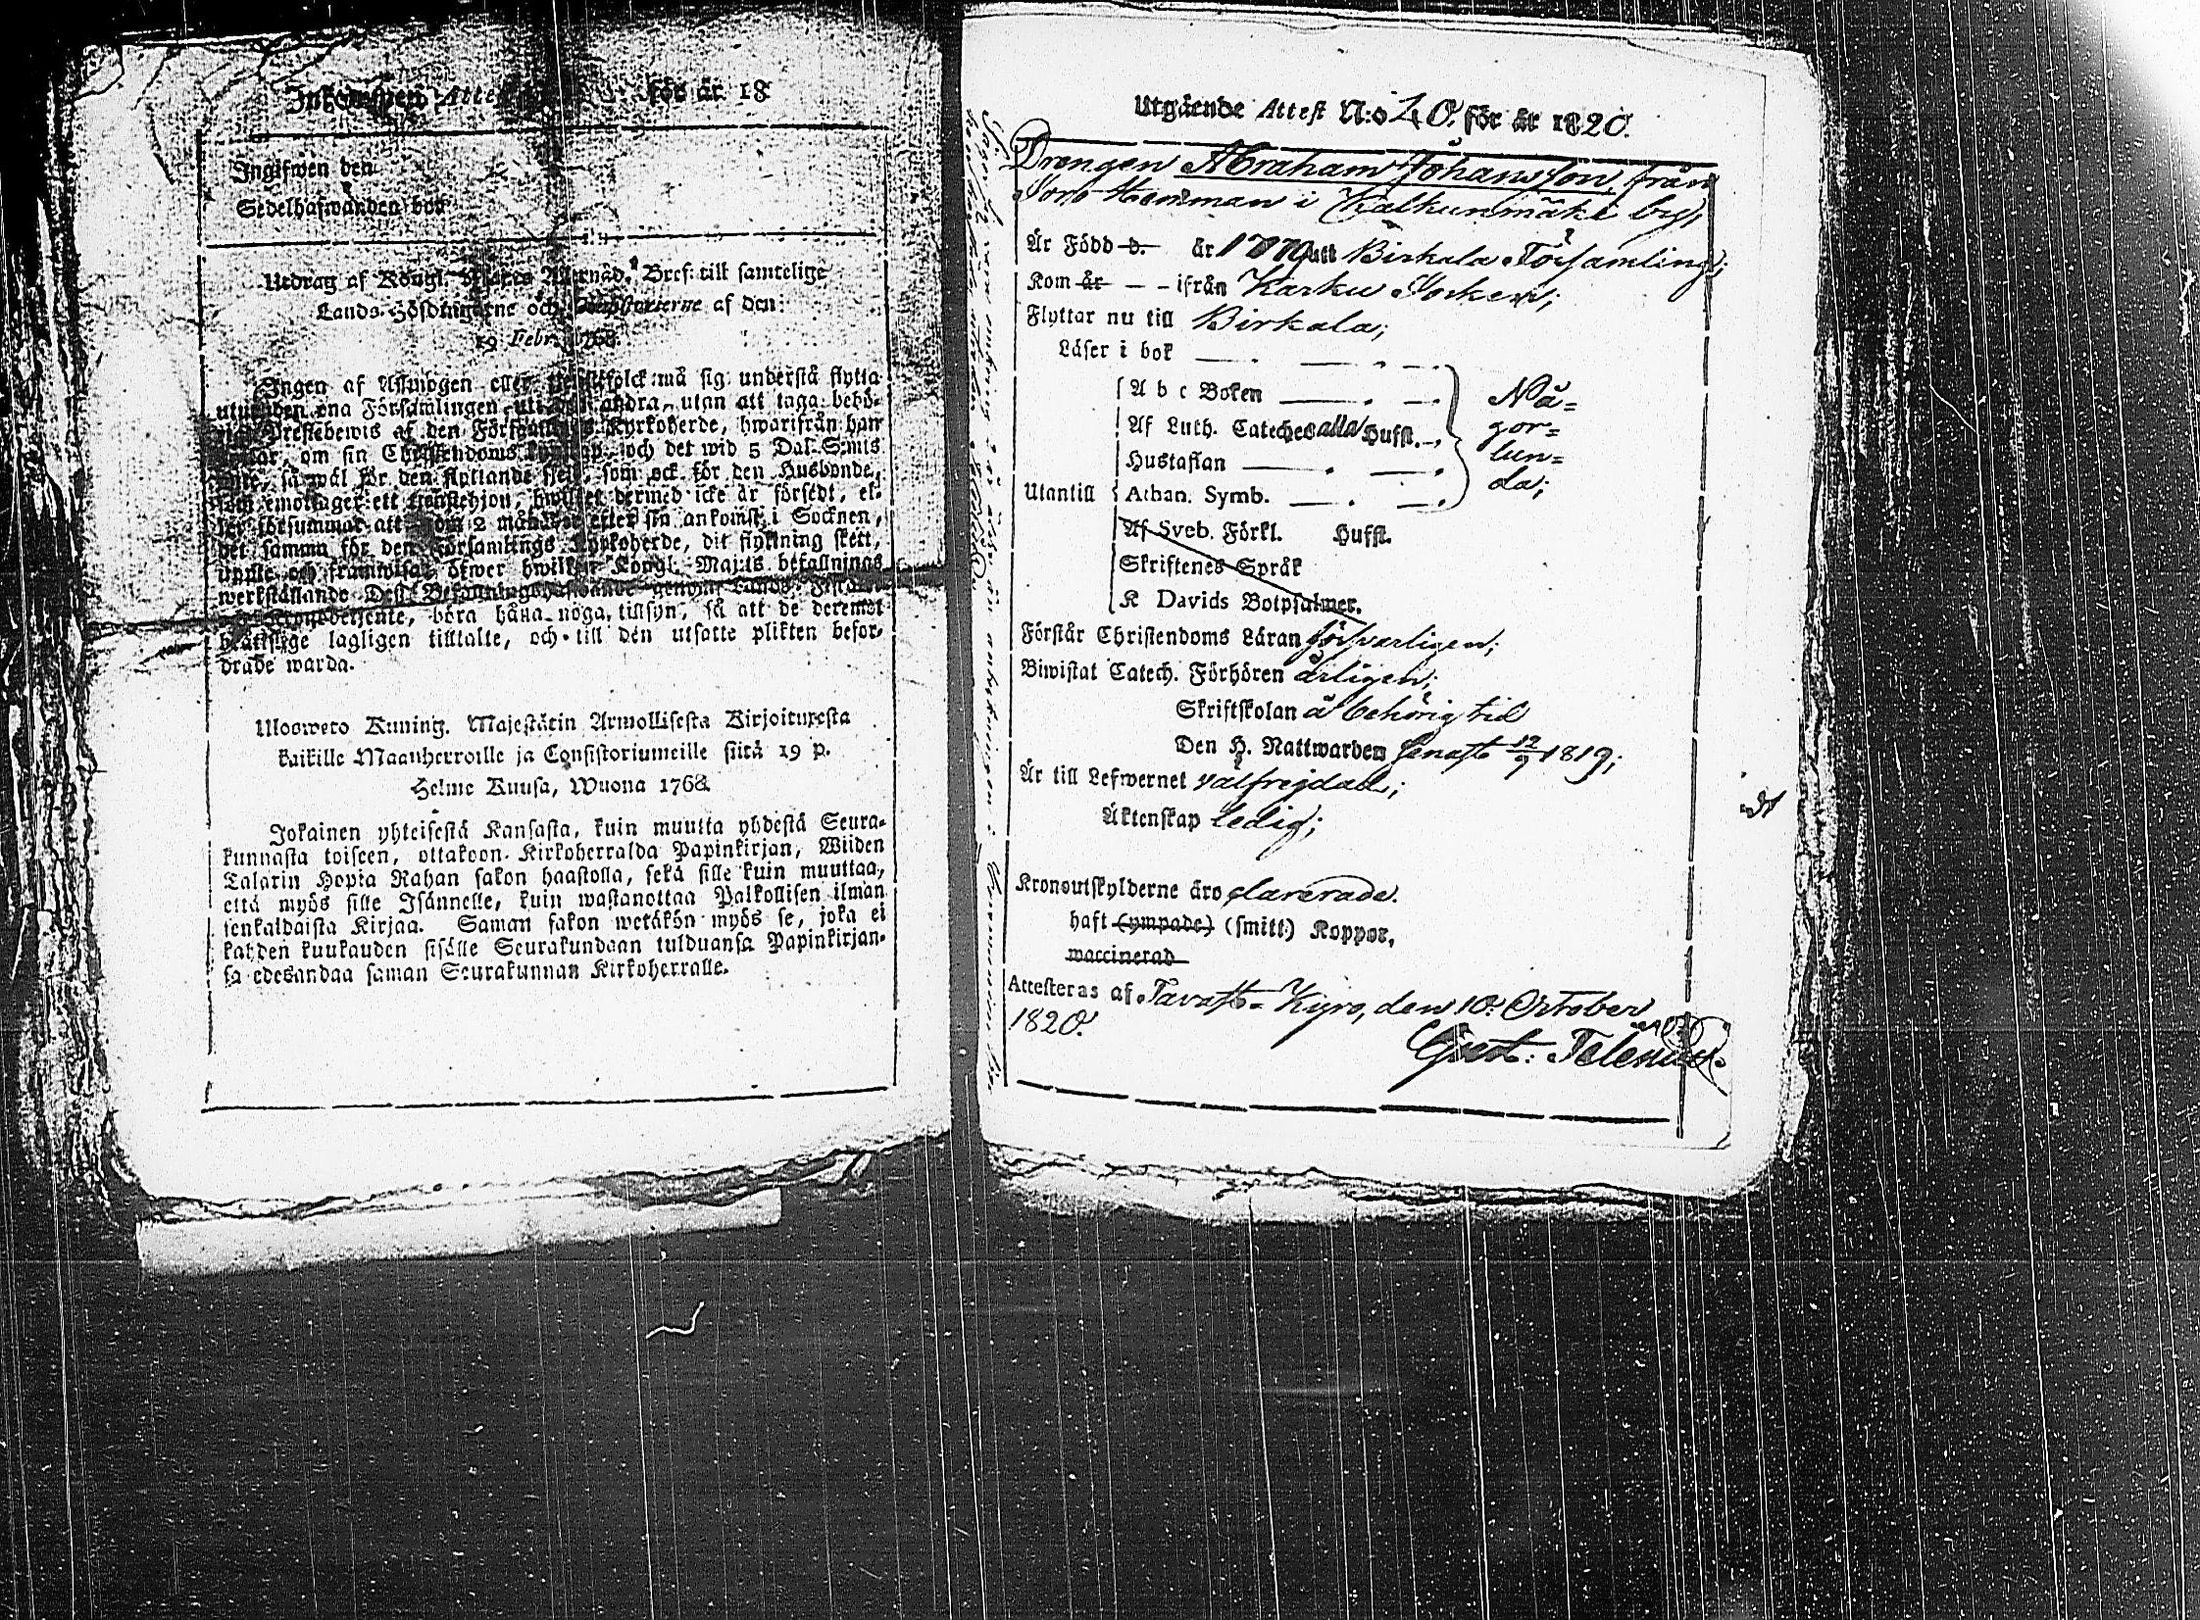 Inkommen Attest för år 18
Ingifwen den
Sedelhafwanden bor
Utdrag af Kongl. Bref till samtelige
Lands-Höfdingarne och Consistorierne af den
19 Febr. 1768.
Ingen af Allmogen eller må sig understå flytta
utur den ena Församlingen uti den andra, utan att taga behö-
Prestebewis af den Församlings Kyrkoherde, hwarifrån han
om sin Christendoms och det wid 5 Dal. S:mts
så wäl för den flyttande sjelf, som ock för den Husbonde,
som emottager ett tjenstehjon, hwilket dermed icke är försedt, el-
ler försummar att inom 2 månader efter sin ankomst i Socknen,
det samma för den Församlings Kyrkoherde, dit flyttning skett,
upte och framwisa; öfwer hwilken Kongl. Maj:ts befallnings
werkställande Dess Befallningshafwande genom Lands-Fiscaler
böra hålla noga tillsyn, så att de deremot
bråttslige lagligen tilltalte, och till den utsatte plikten befor-
drade warda.
Ulosweto Kuning. Majestätin Armollisesta Kirjoituxesta
kaikille Maanherroille ja Consistoriumeille siitä 19 p.
Helme Kuusa, Wuona 1768.
Jokainen yhteisestä Kansasta, kuin muutta yhdestä Seura-
kunnasta toiseen, ottakoon Kirkoherralda Papinkirjan, Wiiden
Talarin Hopia Rahan sakon haastolla, sekä sille kuin muuttaa,
että myös sille Isännelle, kuin wastanottaa Palkollisen ilman
senkaldaista Kirjaa. Saman sakon wetäkön myös se, joka ei
kahden kuukauden sisälle Seurakundaan tulduansa Papinkirjan-
sa edesandaa saman Seurakunnan Kirkoherralle.
Utgående Attest N:o 40. för år 1820.
Drengen Abraham Johansson, från
Hemman i Kalkunmäki by,
Är Född d. år 1779 uti Birkala Församling;
Kom år - - ifrån Karku Socken;
Flyttar nu till Birkala;
Läser i bok
A b c Boken Nå=
Af Luth. Cateches alla Hufst. gor=
Hustaflan lun=
Utantill Athan. Symb. da;
Af Sveb. Förkl. Hufst.
Skriftenes Språk
K Davids Botpsalmer.
Förstår Christendoms Läran försvarligen;
Biwistat Catech. Förhören årligen;
Skriftskolan å behörig tid
Den H. Nattwarden senast 12/9 1819;
Är till Lefwernet välfrejdad;
Äktenskap ledig;
Kronoutskylderne äro clarerade.
haft (ympade) (smitt) Koppor,
waccinerad
Attesteras af Tavast-Kyro, den 10. October
1820.
Gust: Telenius